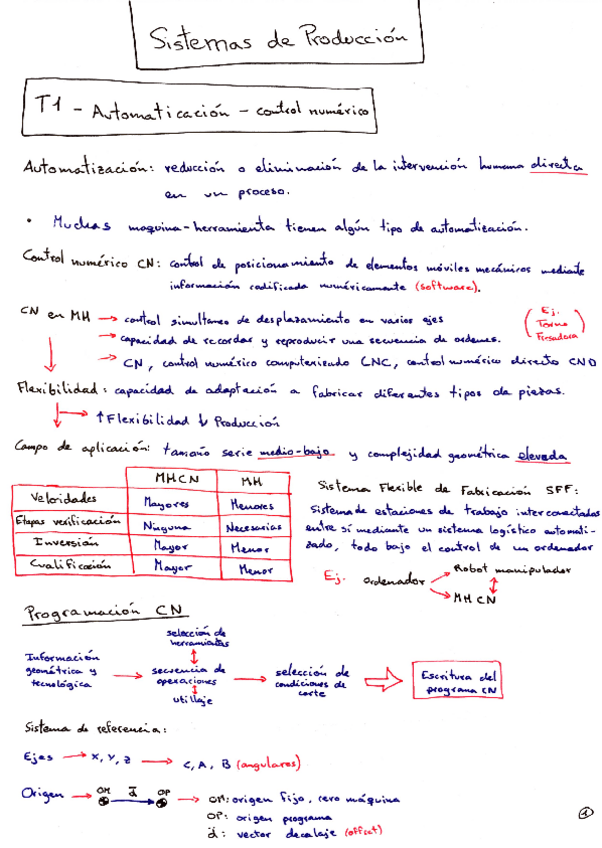 Sistemas de Producción
T1 - Automaticación - control numérico
Automatización: reducción o eliminación de la intervención humana directa
en un proceso.
• Muchas maquina-herramienta tienen algún tipo de automatización.
Control numérico CN: control de posicionamiento de elementos móviles mecánicos mediante
información codificada numéricamente (software).
CN en MH → control simultaneo de desplazamiento en varios ejes
(Ej. Torno Fresadora)
→ capacidad de recordar y reproducir una secuencia de ordenes.
→ CN, control numérico computerizado CNC, control numérico directo CND
Flexibilidad: capacidad de adaptación a fabricar diferentes tipos de piezas.
→ ↑ Flexibilidad ↓ Producción
Campo de aplicación: tamaño serie medio-bajo y complejidad geométrica elevada
MHCN MH
Velocidades Mayores Menores
Etapas verificación Ninguna Necesarias
Inversión Mayor Menor
Cualificación Mayor Menor
Sistema Flexible de Fabricación SFF:
Sistema de estaciones de trabajo interconectadas
entre sí mediante un sistema logístico automati-
zado, todo bajo el control de un ordenador
Ej. ordenador → Robot manipulador
→ MHCN
Programación CN
Información
geométrica y
tecnológica
→
selección de
herramientas
↕
secuencia de
operaciones
↕
utillaje
→
selección de
condiciones de
corte
⇒
Escritura del
programa CN
Sistema de referencia:
Ejes → X, Y, Z → C, A, B (angulares)
Origen → OM d⃗ OP → OM: origen fijo, cero máquina
OP: origen programa
d⃗: vector decalaje (offset)
1